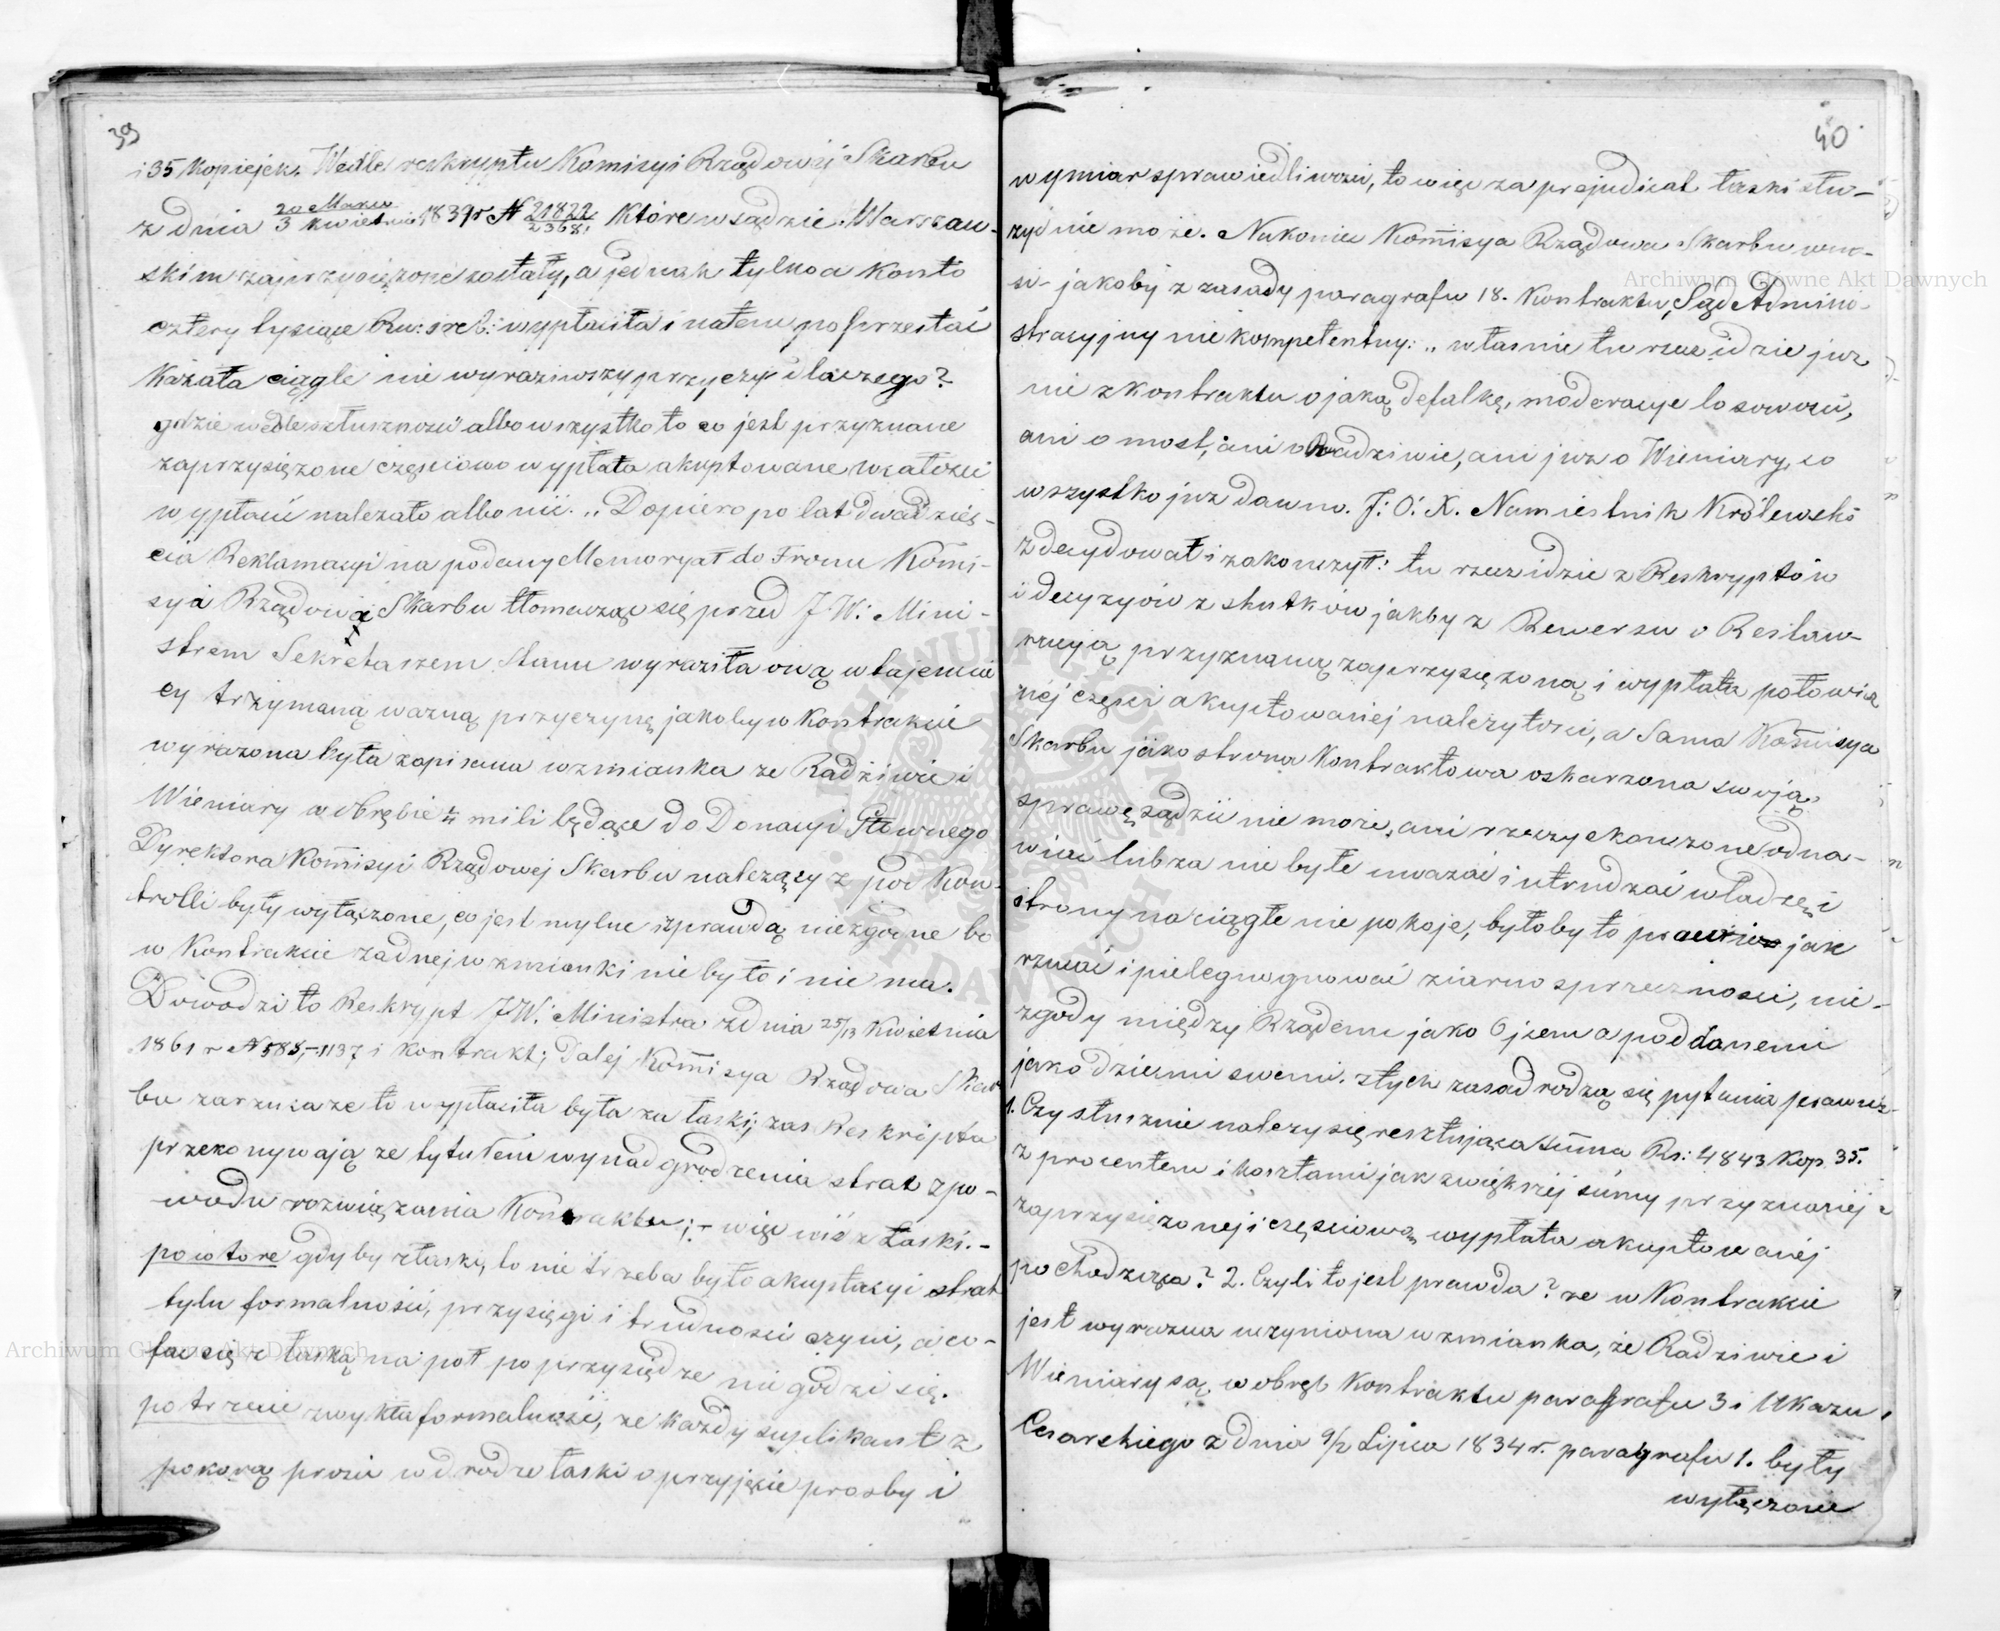 39
i 35 Kopiejek. Wedle reskryptu Komisyi Rządowéj Skarbu
z dnia 20 Marca / 3 Kwietnia 1839 r N 21822 / 2368. Które w sądzie Warszaw-
skim zaprzysiężone zostały, a jednak tylko a Konto
cztery tysiące Ru: sreb: wypłaciła i natem poprzestać
Kazała ciągle nie wyraziwszy przyczyn dlaczego?
gdzie wedle słuszności albo wszystko to co jest przyznane
zaprzysiężone częściowo wypłatą akceptowane w całości
wypłacić należało albo nic. „Dopiero po lat dwadzieś-
cia Reklamacyi na podany Memoryał do Tronu Komi-
sya Rządowa Skarbu tłomacząc się przed J W: Mini-
strem Sekretarzem Stanu wyraziła ową w tajemni
cy trzymaną ważną przyczynę jakoby w Kontrakcie
wyrazona była zapisana wzmianka ze Radziwie i
Winiary w obrębie ¼ mili będące do Donacyi Głównego
Dyrektora Komisyi Rządowej Skarbu należący z pod Kon-
trolli były wyłączone, co jest mylne i z prawdą niezgodne bo
w Kontrakcie żadnej wzmianki nie było i nie ma.
Dowodzi to Reskrypt JW. Ministra z dnia 25/13 Kwietnia
1861 r N 585,-1137 i kontrakt; Dalej Komisya Rządowa Skar
bu zarzuca ze to wypłaciła była za łaski; zas Reskripta
przekonywają ze tytułem wynadgrodzenia strat z po-
wodu rozwiązania Kontraktu;- więc nie z Łaski.-
powtore gdyby z łaski, to nie trzeba było akceptacyi strat
tylu formalności, przysięgi i trudności czyni, a co-
fac się z łaską na pół po przysiędze nie godzi się.
potrzecie zwykła formalność, ze każdy suplikant z
pokorą prosi w drodze łaski o przyjęcie prosby i
40
wymiar sprawiedliwości, to więc za prejudicat łaski słu-
zyć nie może. Nakoniec Komisya Rządowa Skarbu wno-
si- jakoby z zasady paragrafu 18. Kontraktu, Sąd Admini-
stracyjny niekompetentny: „ własnie tu rzecz idzie juz
nie z kontraktu o jaką defalkę, moderacye losowości,
ani o most, ani o Radziwie, ani juz o Winiary, co
wszystko juz dawno. J: O: X. Namiestnik Królewski
zdecydował i zakończył: tu rzecz idzie z Reskryptów
i decyzyów z skutków jakby z Rewersu o Restau-
racyą przyznaną zaprzysiężoną i wypłatą połowicz
nej części akceptowanej należytosci, a Sama Komisya
Skarbu jako strona Kontraktowa oskarzona swoją
sprawę sądzić nie może, ani rzeczy skonczone odna-
wiać lub za nie byłe uważać i utrudzać władzę i
strony na ciągłe nie pokoje, byłoby to prawie jak
rzucać i pielegnognować ziarno sprzeczności, nie-
zgody między Rządem jako Ojcem a poddanemi
jako dziećmi swemi. z tych zasad rodzą się pytania prawne-
1. Czy słusznie nalezy się resztująca Summa Rs: 4843 Kop 35.
z procentem i kosztami jak z większej sumy przyznanej i
zaprzysiężonej i częściową wypłatą akceptowanej
pochodząca? 2. Czyli to jest prawda? ze w Kontrakcie
jest wyrazna uczyniona wzmianka, że Radziwie i
Winiary są w obręb Kontraktu paragrafu 3 i Ukazu
Cesarskiego z dnia 9/2 Lipca 1834 r. paragrafu 1. były
wyłączone
Archiwum Główne Akt Dawnych
Archiwum Główne Akt Dawnych